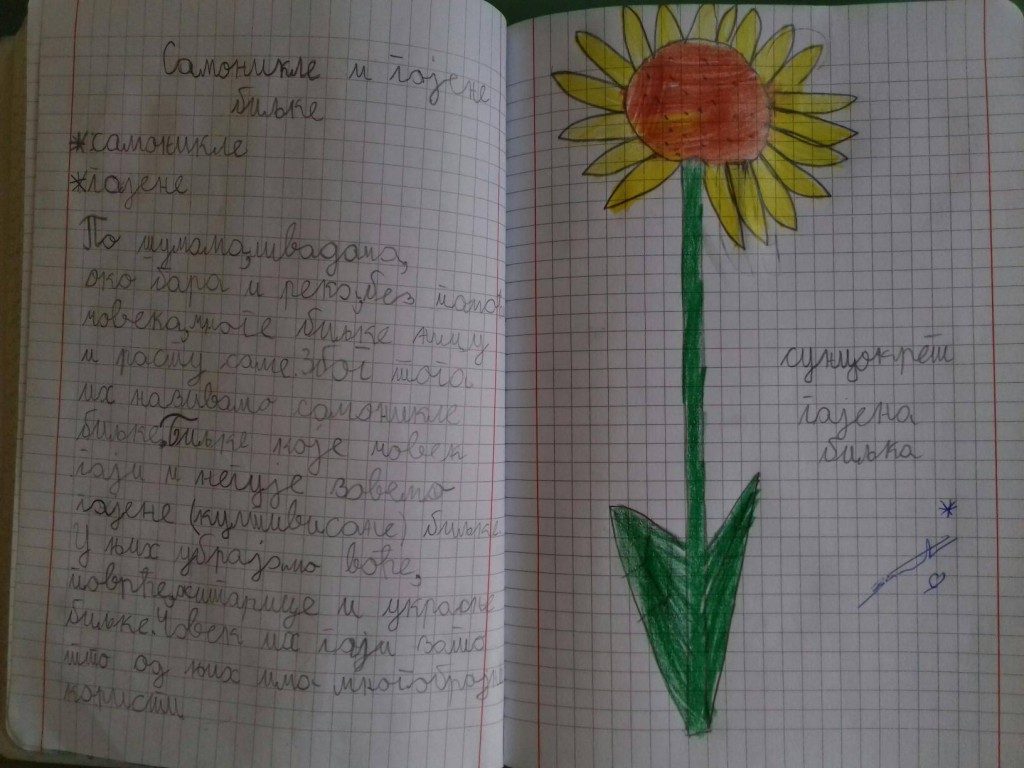 Самоникле и гајене
биљке
*самоникле
*гајене
По шумама, ливадама,
око бара и река, без помоћ
човека, многе биљке ничу
и расту саме. Због тога
их називамо самоникле
биљке. Биљке које човек
гаји и негује зовемо
гајене (култивисане) биљке.
У њих убрајамо воће,
поврће, житарице и украсне
биљке. Човек их гаји зато
што од њих има многобројн
користи.
сунцокрет
гајена
биљка